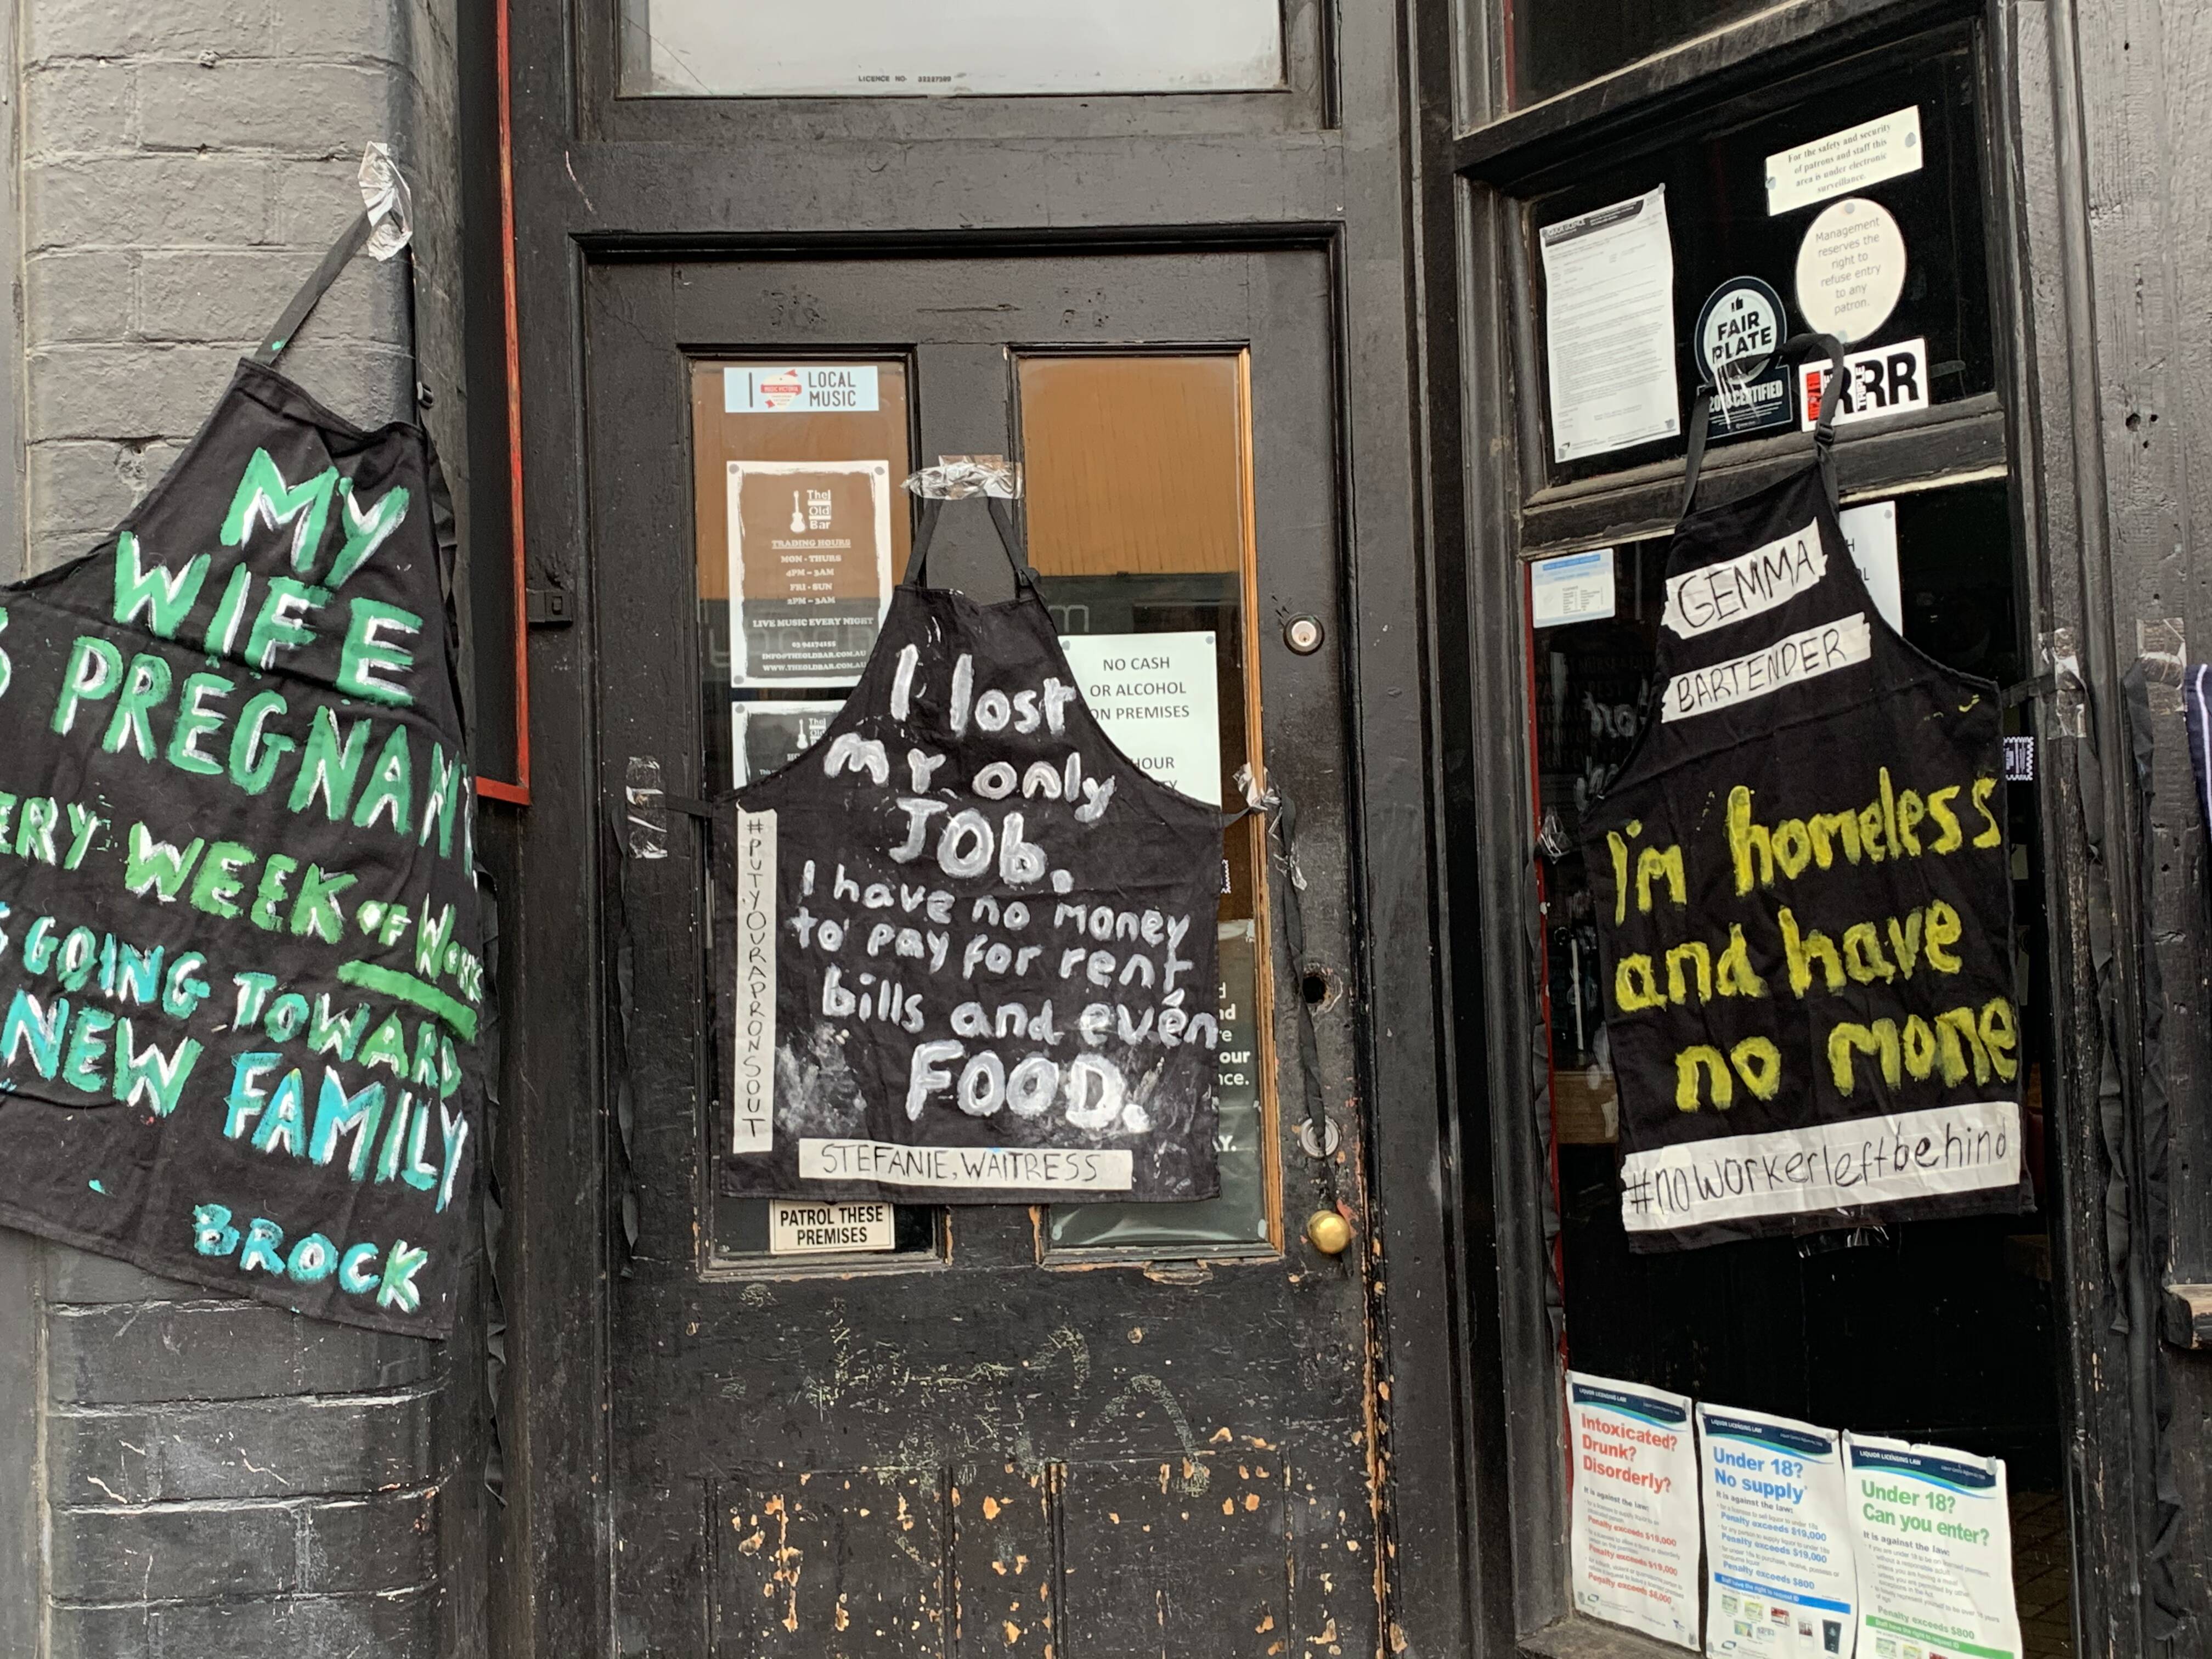 LICENCE NO.
MY
WIFE
PREGNAN
ERY WEEK OF WORK
GOING TOWARD
NEW FAMILY
BROCK
I
LOCAL
MUSIC
The
Old
Bar
TRADING HOURS
MON - THURS
4PM - 3AM
FRI - SUN
2PM - 3AM
LIVE MUSIC EVERY NIGHT
INFO@THEOLDBAR.COM.AU
WWW.THEOLDBAR.COM.AU
The
NO CASH
OR ALCOHOL
ON PREMISES
HOUR
I lost
my only
JOb.
I have no money
to pay for rent
bills and even
FOOD.
#PUTYOURAPRONSOUT
STEFANIE, WAITRESS
our
nce.
PATROL THESE
PREMISES
For the safety and security
of patrons and staff this
area is under electronic
surveillance.
Management
reserves the
right to
refuse entry
to any
patron.
FAIR
PLATE
CERTIFIED
TRIPLE
RRR
GEMMA
BARTENDER
i'm homeless
and have
no mone
#noworkerleftbehind
LIQUOR LICENSING LAW
Intoxicated?
Drunk?
Disorderly?
It is against the law:
Penalty exceeds $19,000
Penalty exceeds $19,000
LIQUOR LICENSING LAW
Under 18?
No supply
It is against the law:
Penalty exceeds $19,000
Penalty exceeds $19,000
Penalty exceeds $800
LIQUOR LICENSING LAW
Under 18?
Can you enter?
It is against the law:
Penalty exceeds $800